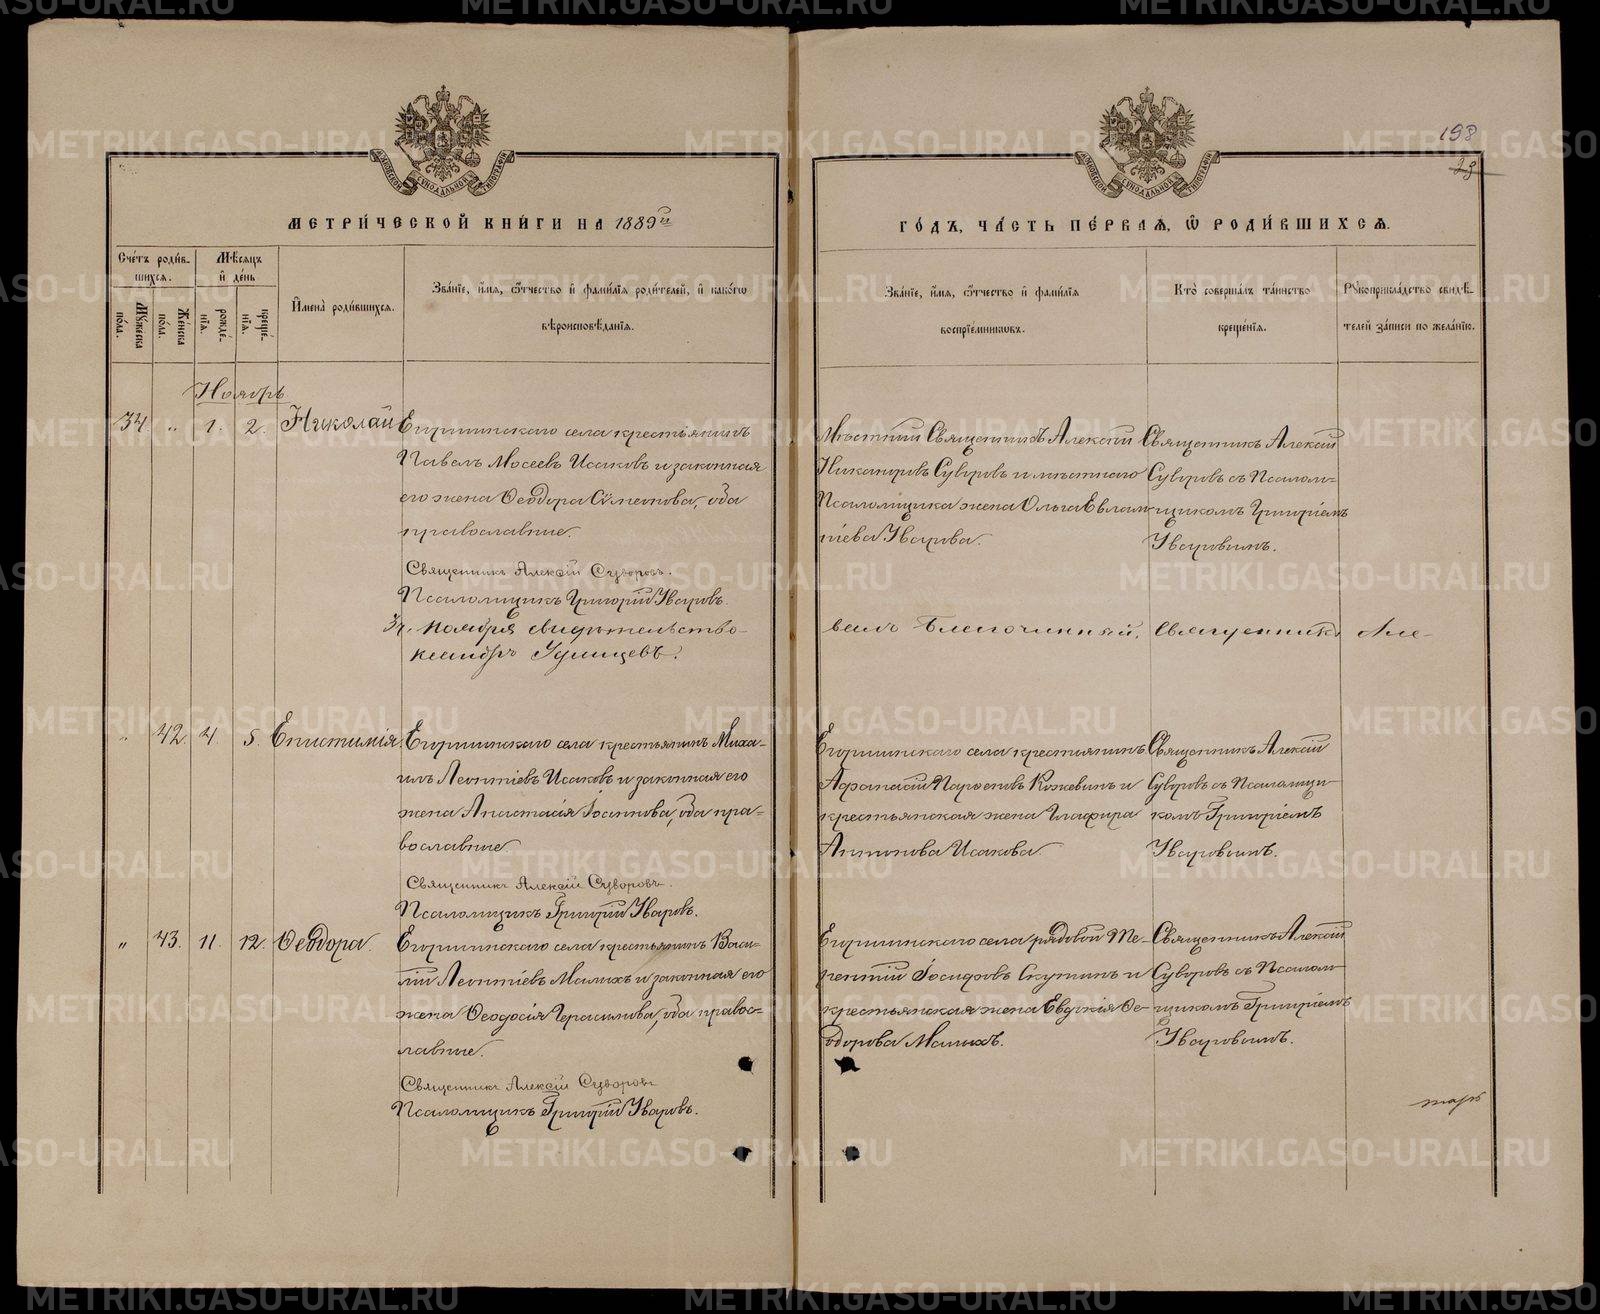 198
23
МЕТРИ́ЧЕСКОЙ КНИ́ГИ НА 1889й
ГО́ДЪ, ЧА́СТЬ ПЕ́РВАѦ, Ѡ РОДИ́ВШИХСѦ.
Сче́тъ роди́в-
шихсѧ.
Мꙋ́жеска по́ла.
Же́нска по́ла.
Мѣ́сѧцъ
и҆ де́нь
рожде́-
нїѧ.
креще́-
нїѧ.
И҆мена̀ роди́вшихсѧ.
Зва́нїе, и҆́мѧ, ѻ҆́тчество и҆ фами́лїѧ роди́телей, и҆ како́гѡ
вѣроисповѣ́данїѧ.
Зва́нїе, и҆́мѧ, ѻ҆́тчество и҆ фами́лїѧ
воспрїе́мникѡвъ.
Кто̀ соверша́лъ та́инство
креще́нїѧ.
Рꙋкоприкла́дство свидѣ́-
телей за́писи по жела́нїю.
Ноябрь
34. „ 1. 2. Николай
Егоршинскаго села крестьянинъ
Павелъ Мосеевъ Исаковъ и законная
его жена Ѳеодора Сѵмеонова, оба
православные.
Священникъ Алексій Суворовъ.
Псаломщикъ Григорій Уваровъ.
Мѣстный Священникъ Алексій
Никаноровъ Суворовъ и мѣстнаго
Псаломщика жена Ольга Евлам-
піева Уварова.
Священникъ Алексій
Суворовъ съ Псалом-
щикомъ Григоріемъ
Уваровымъ.
Ноября свидѣтельство-
валъ Благочинный, Священникъ Але-
ксандръ
„ 42. 4. 5. Епистимія.
Егоршинскаго села крестьянинъ Миха-
илъ Леонтіевъ Исаковъ и законная его
жена Анастасія Іоаннова, оба пра-
вославные
Священникъ Алексій Суворовъ.
Псаломщикъ Григорій Уваровъ.
Егоршинскаго села крестиянинъ
Афанасій Кожевинъ и
крестьянская жена Глафира
Антонова Исакова.
Священникъ Алексій
Суворовъ съ Псаломщи-
комъ Григоріемъ
Уваровымъ.
„ 43. 11. 12. Ѳеодора
Егоршинскаго села крестьянинъ Васи-
лій Леонтіевъ Малыхъ и законная его
жена Ѳеодосія Герасимова, оба правос-
лавные.
Священникъ Алексій Суворовъ
Псаломщикъ Григорій Уваровъ.
Егоршинскаго села рядовой Те-
рентій Іосифовъ Скутинъ и
крестьянская жена Евдокія Ѳе-
одорова Малыхъ.
Священникъ Алексій
Суворовъ съ Псалом-
щикомъ Григоріемъ
Уваровымъ.
METRIKI.GASO-URAL.RU